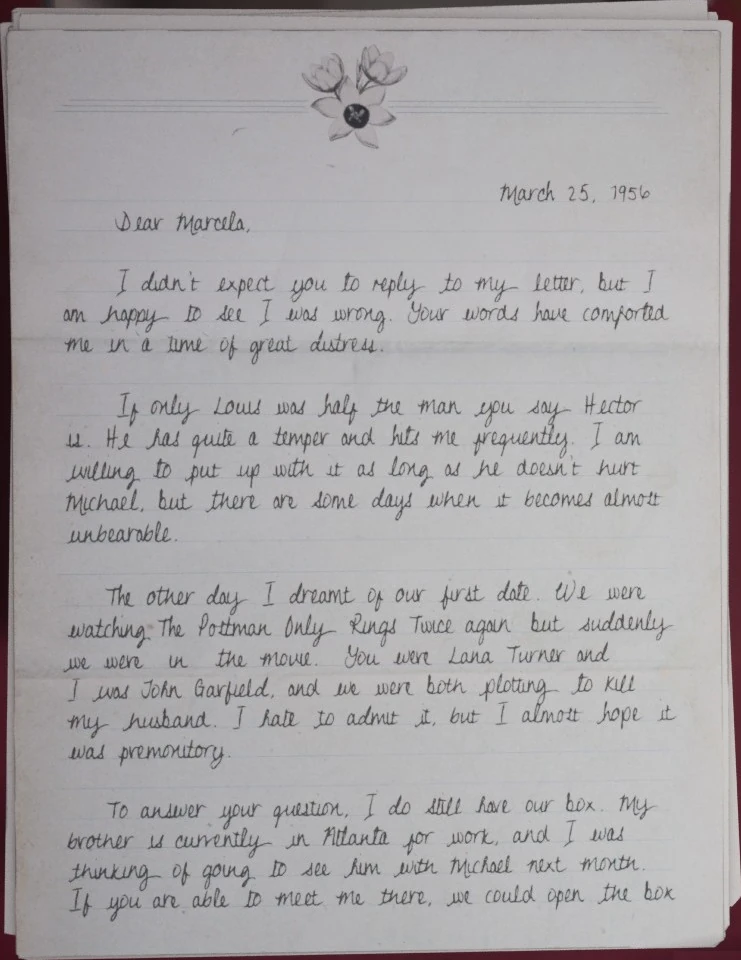 March 25, 1956
Dear Marcela,
I didn't expect you to reply to my letter, but I
am happy to see I was wrong. Your words have comforted
me in a time of great distress.
If only Louis was half the man you say Hector
is. He has quite a temper and hits me frequently. I am
willing to put up with it as long as he doesn't hurt
Michael, but there are some days when it becomes almost
unbearable.
The other day I dreamt of our first date. We were
watching The Postman Only Rings Twice again but suddenly
we were in the movie. You were Lana Turner and
I was John Garfield, and we were both plotting to kill
my husband. I hate to admit it, but I almost hope it
was premonitory.
To answer your question, I do still have our box. My
brother is currently in Atlanta for work, and I was
thinking of going to see him with Michael next month.
If you are able to meet me there, we could open the box